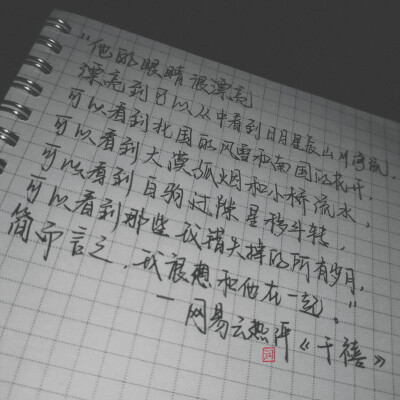 "他的眼睛很漂亮
漂亮到可以从中看到日月星辰山川海流,
可以看到北国的风雪和南国的花开,
可以看到大漠孤烟和小桥流水,
可以看到白驹过隙星移斗转,
可以看到那些我错失掉的所有岁月,
简而言之,我很想和他在一起。"
—网易云热评《千禧》